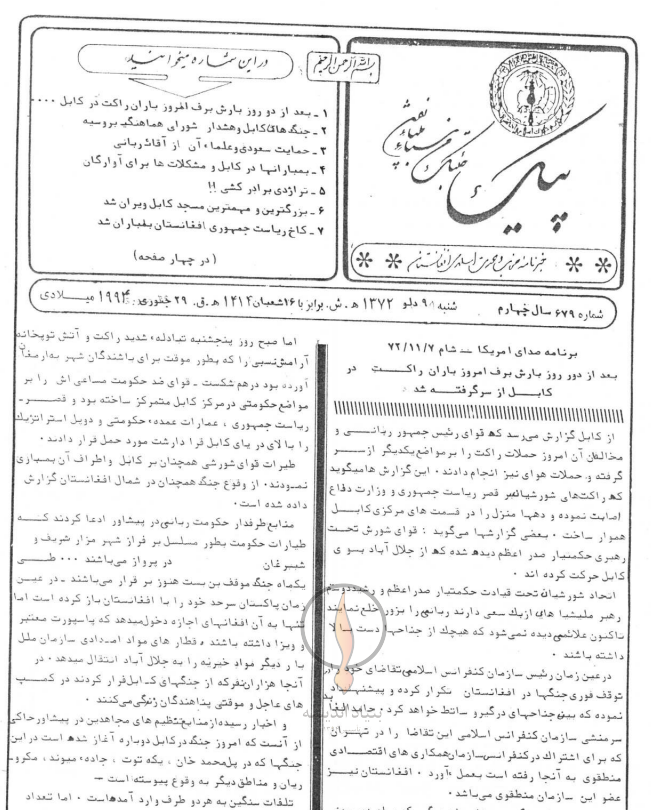 بسم الله الرحمن الرحیم
در این شماره میخوانید
۱ـ بعد از دو روز بارش برف امروز باران راکت در کابل ....
۲ـ جنگ های کابل و هشدار شورای هماهنگی بروسیه
۳ـ حمایت سعودی و علماء آن از آقای ربانی
۴ـ بمبارانها در کابل و مشکلات ها برای آوارگان
۵ـ تراژدی برادر کشی !!
۶ـ بزرگترین و مهمترین مسجد کابل ویران شد
۷ـ کاخ ریاست جمهوری افغانستان بمباران شد
(در چهار صفحه)
پیک
شماره ۶۷۹ سال چهارم
شنبه ۹ دلو ۱۳۷۲ هـ.ش. برابر با ۱۶ شعبان ۱۴۱۴ هـ.ق. ۲۹ جنوری ۱۹۹۴ میلادی
برنامه صدای امریکا ـ شام ۷۲/۱۱/۷
بعد از دور روز بارش برف امروز باران راکت در
کابل از سر گرفته شد
از کابل گزارش می رسد که قوای رئیس جمهور ربانی و
مخالفان آن امروز حملات راکت را بر مواضع یکدیگر از سر
گرفته و حملات هوای نیز انجام دادند . این گزارش ها میگوید
که راکت های شورشیان بر قصر ریاست جمهوری و وزارت دفاع
اصابت نموده و دهها منزل را در قسمت های مرکزی کابل
هموار ساخت . بعضی گزارشها می گوید : قوای شورش تحت
رهبری حکمتیار صدر اعظم دیده شده که از جلال آباد بسوی
کابل حرکت کرده اند .
اتحاد شورشیان تحت قیادت حکمتیار صدر اعظم و رشید دوستم
رهبر ملیشیا های ازبک سعی دارند ربانی را بزور خلع نمایند
تاکنون علائمی دیده نمی شود که هیچک از جناحها دست بالا
داشته باشند .
در عین زمان رئیس سازمان کنفرانس اسلامی تقاضای خود را
توقف فوری جنگها در افغانستان تکرار کرده و پیشنهاد
نموده که بین جناحهای درگیر وساطت خواهد کرد . حامد الغابد
سرمنشی سازمان کنفرانس اسلامی این تقاضا را در تهران
که برای اشتراک در کنفرانس سازمان همکاری های اقتصادی
منطقوی به آنجا رفته است بعمل آورد . افغانستان نیز
عضو این سازمان منطقوی می باشد .
اما صبح روز پنجشنبه تبادله شدید راکت و آتش توپخانه
آرامش نسبی را که بطور موقت برای باشندگان شهر به ارمغان
آورده بود درهم شکست . قوای ضد حکومت مساعی اش را بر
مواضع حکومتی در مرکز کابل متمرکز ساخته بود و قصر
ریاست جمهوری ، عمارات عمده حکومتی و دوپل استراتژیک
را بالای دریای کابل قرار داشت مورد حمل قرار دادند .
طیارات قوای شورشی همچنان بر کابل و اطراف آن بمباری
نمودند . از وقوع جنگ همچنان در شمال افغانستان گزارش
داده شده است .
منابع طرفدار حکومت ربانی در پیشاور ادعا کردند که
طیارات حکومت بطور مسلسل بر فراز شهر مزار شریف و
شبرغان در پرواز می باشند ... طی
یکماه جنگ موقف بن بست هنوز بر قرار می باشند ـ در عین
زمان پاکستان سرحد خود را با افغانستان باز کرده است اما
تنها به آن افغانهای اجازه دخول میدهد که پاسپورت معتبر
و ویزا داشته باشند . قطار های مواد امدادی سازمان ملل
با ر دیگر مواد خیریه را به جلال آباد انتقال میدهد . در
آنجا هزاران نفر که از جنگهای کابل فرار کردند در کمپ
های عاجل و موقتی پناهندگان زندگی می کنند .
و اخبار رسیده از منابع تنظیم های مجاهدین در پیشاور حاکی
از آنست که امروز جنگ در کابل دوباره آغاز شده است در این
جنگها که در پل محمد خان ، یکه توت ، جاده میوند ، مکرو
ریان و مناطق دیگر به وقوع پیوسته است ـ
تلفات سنگین به هر دو طرف وارد آمده است . اما تعداد